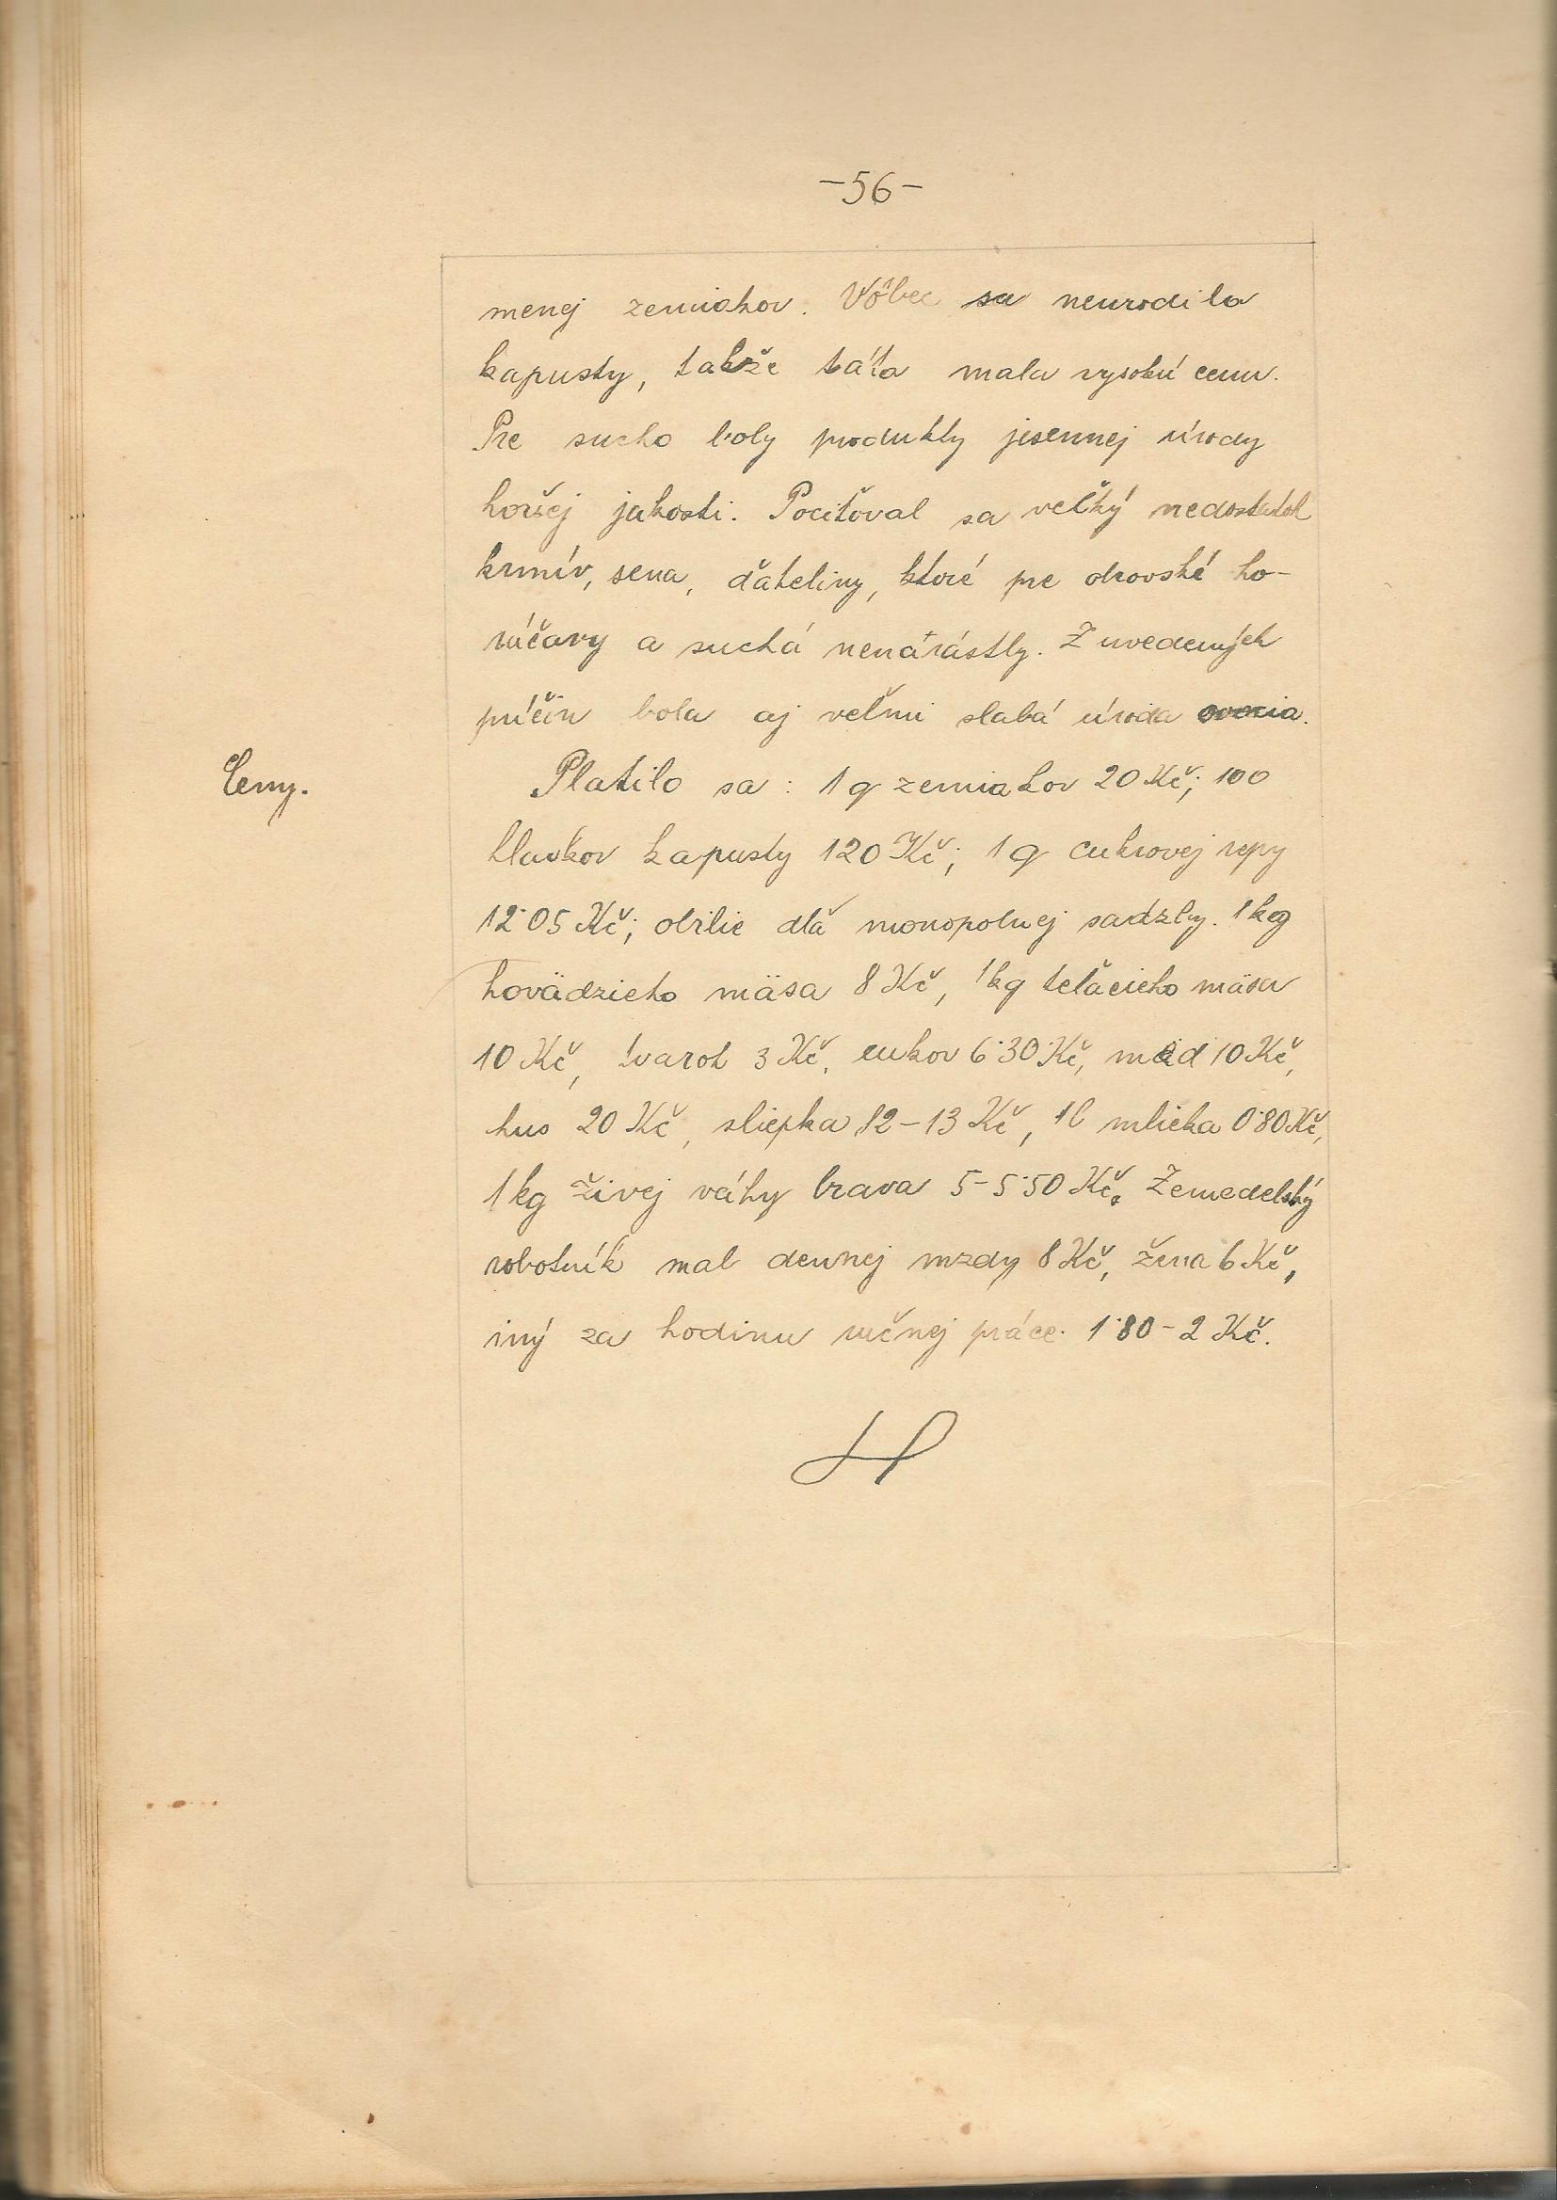 -56-
menej zemiakov. Vôbec sa neurodila
kapusty, takže táto mala vysokú cenu.
Pre sucho boly produkty jesennej úrody
horšej jakosti. Pociťoval sa veľký nedostatok
krmív, sena, ďateliny, ktoré pre obrovské ho-
rúčavy a suchá nenarástly. Z uvedených
príčin bola aj veľmi slabá úroda ovocia.
Ceny.
Platilo sa: 1 q zemiakov 20 Kč; 100
hlavkov kapusty 120 Kč; 1 q cukrovej repy
12·05 Kč; obilie dľa monopolnej sadzby. 1 kg
hovädzieho mäsa 8 Kč, 1 kg teľacieho mäsa
10 Kč, tvaroh 3 Kč, cukor 6·30 Kč, med 10 Kč,
hus 20 Kč, sliepka 12-13 Kč, 1 l mlieka 0·80 Kč,
1 kg živej váhy brava 5-5·50 Kč. Zemedelský
robotník mal dennej mzdy 8 Kč, žena 6 Kč,
iný za hodinu ručnej práce 1·80-2 Kč.